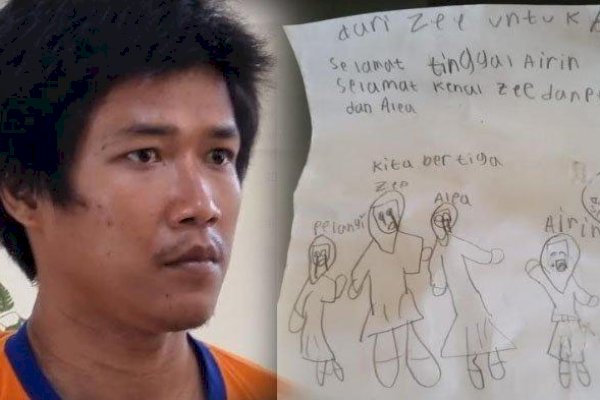 dari Zee untuk
Selamat tinggal Airin
Selamat kenal Zee
dan Alea
Kita bertiga
Zee
Alea
Pelangi
Airin